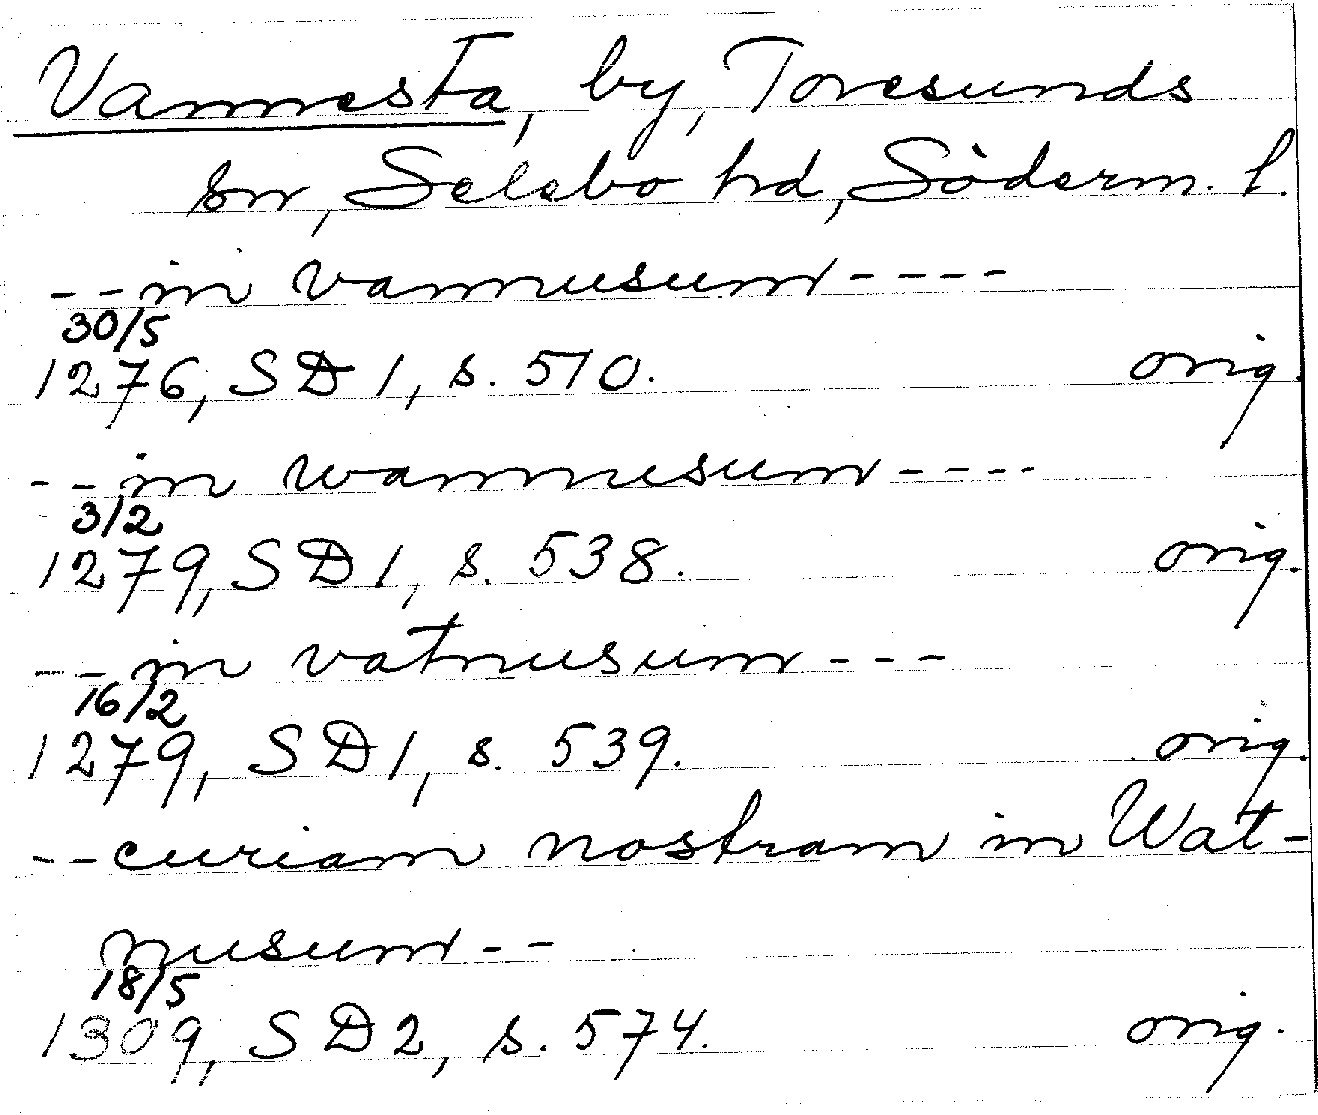 Vannesta, by, Toresunds
sn, Selebo hd, Söderm. l.
--in vannusum----
30/5
1276, SD 1, s. 510. orig.
--in wannusum----
3/2
1279, SD 1, s. 538. orig.
--in vatnusum---
16/2
1279, SD 1, s. 539. orig.
--curiam nostram in Wat-
nusum--
18/5
1309, SD 2, s. 574. orig.